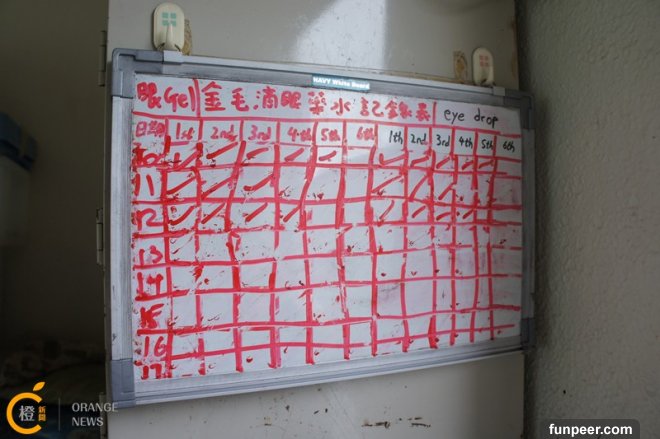 NAVY White Board
眼Gel 金毛滴眼藥水記錄表 eye drop
日期 1st 2nd 3rd 4th 5th 6th 1th 2nd 3rd 4th 5th 6th
11
12
13
14
15
16
17
橙新聞
ORANGE
NEWS
funpeer.com